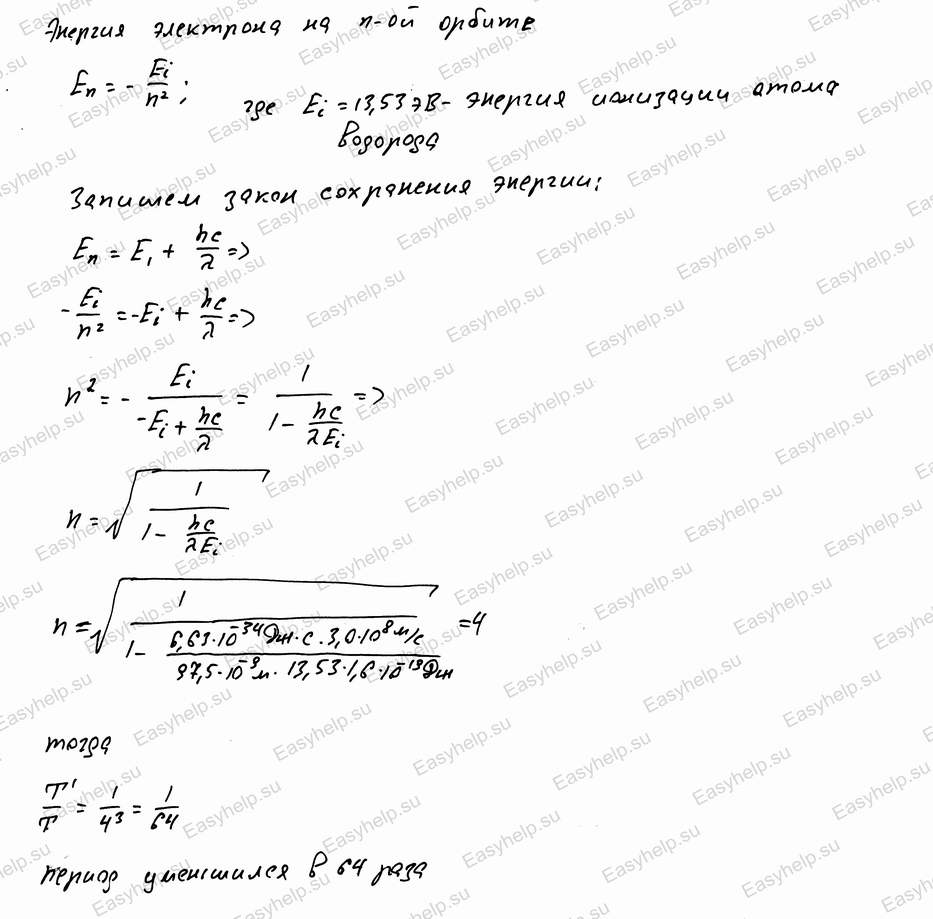 Энергия электрона на n-ой орбите
En = - Ei/n²;
где Ei = 13,53 эВ - энергия ионизации атома
водорода
Запишем закон сохранения энергии:
En = E1 + hc/λ =>
- Ei/n² = -Ei + hc/λ =>
n² = - Ei/(-Ei + hc/λ) = 1/(1 - hc/(λEi)) =>
n = √(1/(1 - hc/(λEi)))
n = √(1/(1 - (6,63·10⁻³⁴ Дж·с·3,0·10⁸ м/с)/(97,5·10⁻⁹ м·13,53·1,6·10⁻¹⁹ Дж))) = 4
тогда
T'/T = 1/4³ = 1/64
период уменьшился в 64 раза
Easyhelp.su